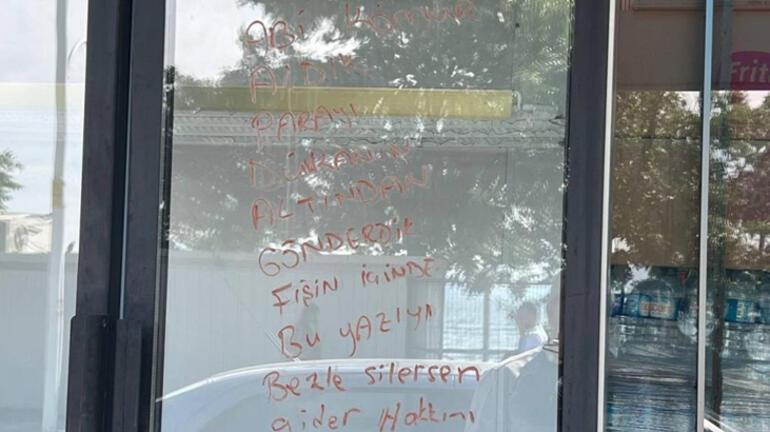 ABİ KÖMÜR
ALDIK
PARAYI
DÜKKANIN
ALTINDAN
GÖNDERDİK
FİŞİN İÇİNDE
BU YAZIYI
Bezle silersen
gider Hakkını
Frit